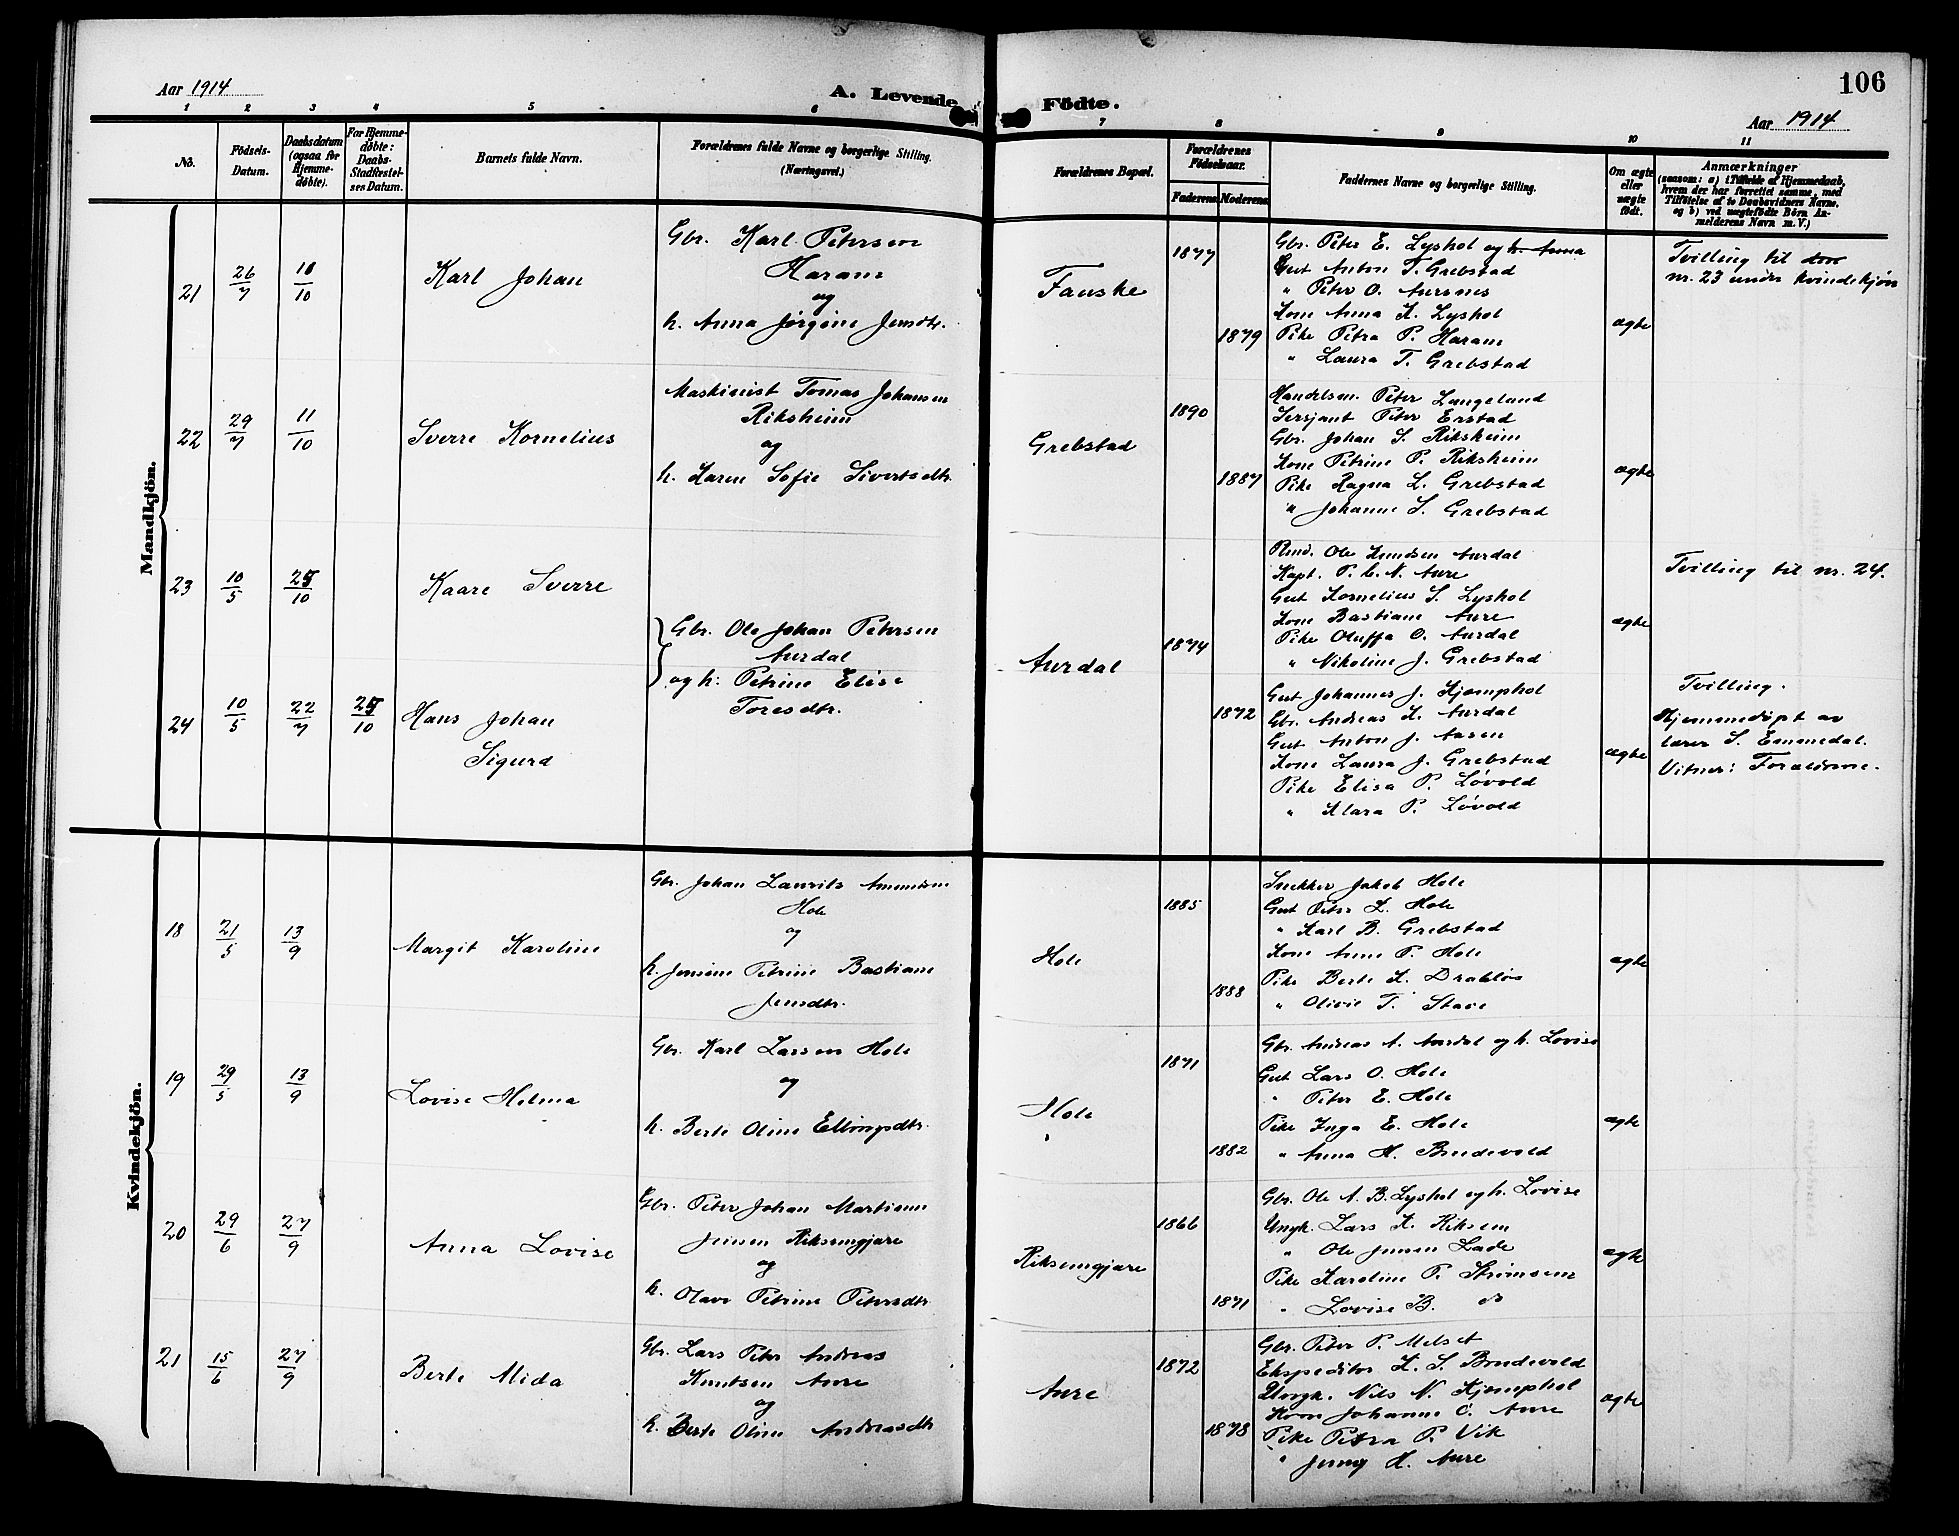 106
Aar 1914
A. Levende Födte.
Aar 1914
1 2 3 4 5 6 7 8 9 10 11
No.
Födsels-
Datum.
Daabsdatum
(ogsaa for
Hjemme-
döbte).
For Hjemme-
döbte:
Daabs-
Stadfæstel-
ses Datum.
Barnets fulde Navn.
Forældrenes fulde Navne og borgerlige Stilling.
(Næringsvei.)
Forældrenes Bopæl.
Forældrenes
Födselsaar.
Faderens
Moderens
Faddernes Navne og borgerlige Stilling.
Om ægte
eller
uægte
födt.
Anmærkninger
(saasom: a) i Tilfælde af Hjemmedaab,
hvem der har forrettet samme, med
Tilföielse af to Daabsvidners Navne,
og b) ved uægtefödte Börn An-
melderens Navn m. V.)
Mandkjön.
21
26/7
18/10
Karl Johan
Gbr. Karl Petersen
Haram
og
h. Anna Jørgine Jensdtr.
Fauske
1877
1879
Gbr. Peter E. Lyshol og h. Anna
Gut Anton T. Grebstad
" Peter O. Aursnes
Kone Anna K. Lyshol
Pike Petra P. Haram
" Laura T. Grebstad
ægte
Tvilling til
nr. 23 under kvindekjøn
22
29/7
11/10
Sverre Kornelius
Maskinist Tomas Johansen
Riksheim
og
h. Karen Sofie Sivertsdtr.
Grebstad
1890
1887
Handelsm. Peter Langeland
Sersjant Peter Erstad
Gbr. Johan S. Riksheim
Kone Petrine P. Riksheim
Pike Ragna L. Grebstad
" Johanne S. Grebstad
ægte
23
10/5
25/10
Kaare Sverre
Gbr. Ole Johan Petersen
Aurdal
og h: Petrine Elise
Toresdtr.
Aurdal
1874
1872
Ole Knudsen Aurdal
Kapt. P. C. N. Aure
Gut Kornelius S. Lyshol
Kone Bastiane Aure
Pike Oluffa O. Aurdal
" Nikoline J. Grebstad
ægte
Tvilling til nr. 24.
24
10/5
22/7
25/10
Hans Johan
Sigurd
Gut Johannes J. Kjemphol
Gbr. Andreas K. Aurdal
Gut Anton J. Aasen
Kone Laura J. Grebstad
Pike Elisa P. Løvold
" Klara P. Løvold
ægte
Tvilling.
Hjemmedøpt av
lærer S. Emmedal.
Vitner: Forældrene.
Kvindekjön.
18
21/5
13/9
Margit Karoline
Gbr. Johan Laurits Amundsen
Hole
og
h. Jensine Petrine Bastiane
Jensdtr.
Hole
1885
1888
Snekker Jakob Hole
Gut Peter K. Hole
" Karl B. Grebstad
Kone Anne P. Hole
Pike Berte K. Drabløs
" Olivie T. Stave
ægte
19
29/5
13/9
Lovise Helma
Gbr. Karl Larsen Hole
og
h. Berte Oline Ellingsdtr.
Hole
1871
1882
Gbr. Andreas A. Aurdal og h. Lovise
Gut Lars O. Hole
" Peter E. Hole
Pike Inga E. Hole
" Anna H. Brudevold
ægte
20
29/6
27/9
Anna Lovise
Gbr. Peter Johan Martinus
Jensen Riksemgjære
og
h. Olave Petrine Petersdtr.
Riksemgjære
1866
1871
Gbr. Ole A. B. Lyshol og h. Lovise
Ungk. Lars K. Riksem
" Ole Jensen Lade
Pike Karoline P. Strømsem
" Lovise B. do
ægte
21
15/6
27/9
Berte Alida
Gbr. Lars Peter Andreas
Knutsen Aure
og
h. Berte Oline Andreasdtr
Aure
1872
1878
Gbr. Peter P. Melset
Ekspeditør K. S. Brudevold
Ungk. Nils N. Kjemphol
Kone Johanne O. Aure
Pike Petra P. Vik
" Jenny K. Aure
ægte